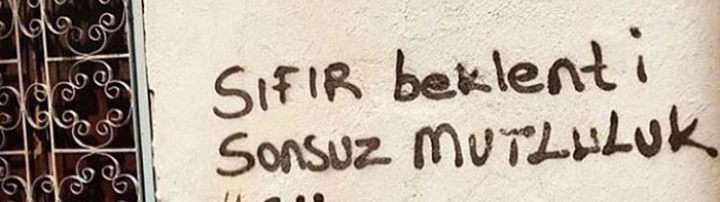 SIFIR beklenti
Sonsuz MUTLULUK